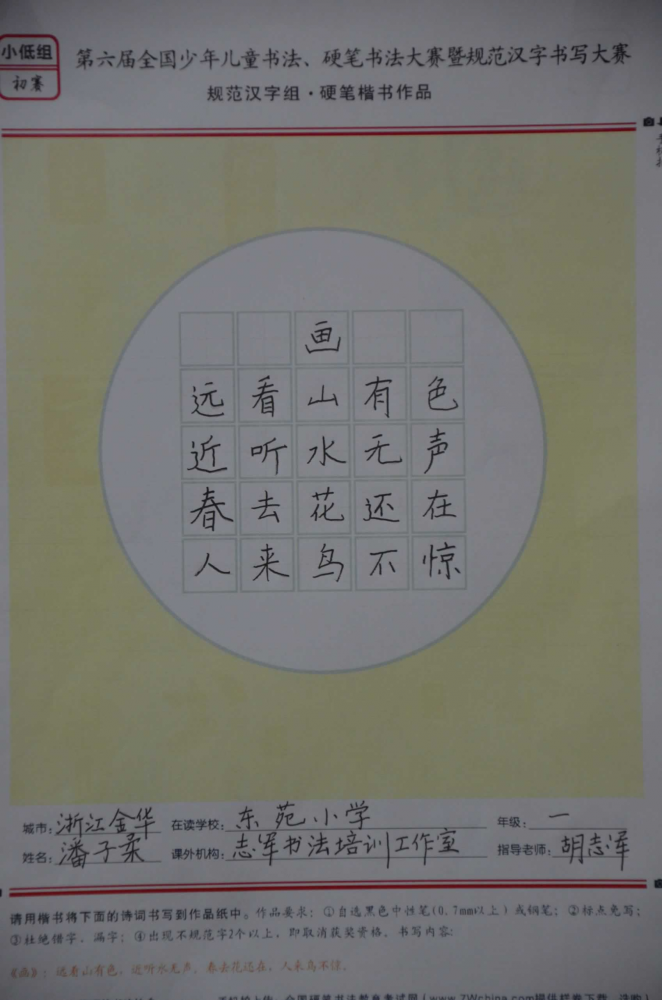 小低组
初赛
第六届全国少年儿童书法、硬笔书法大赛暨规范汉字书写大赛
规范汉字组·硬笔楷书作品
画
远看山有色
近听水无声
春去花还在
人来鸟不惊
城市：浙江金华 在读学校：东苑小学 年级：一
姓名：潘子柔 课外机构：志军书法培训工作室 指导老师：胡志军
请用楷书将下面的诗词书写到作品纸中。作品要求：①自选黑色中性笔(0.7mm以上)或钢笔；②标点免写；
③杜绝错字、漏字；④出现不规范字2个以上，即取消获奖资格。书写内容：
《画》：远看山有色，近听水无声。春去花还在，人来鸟不惊。